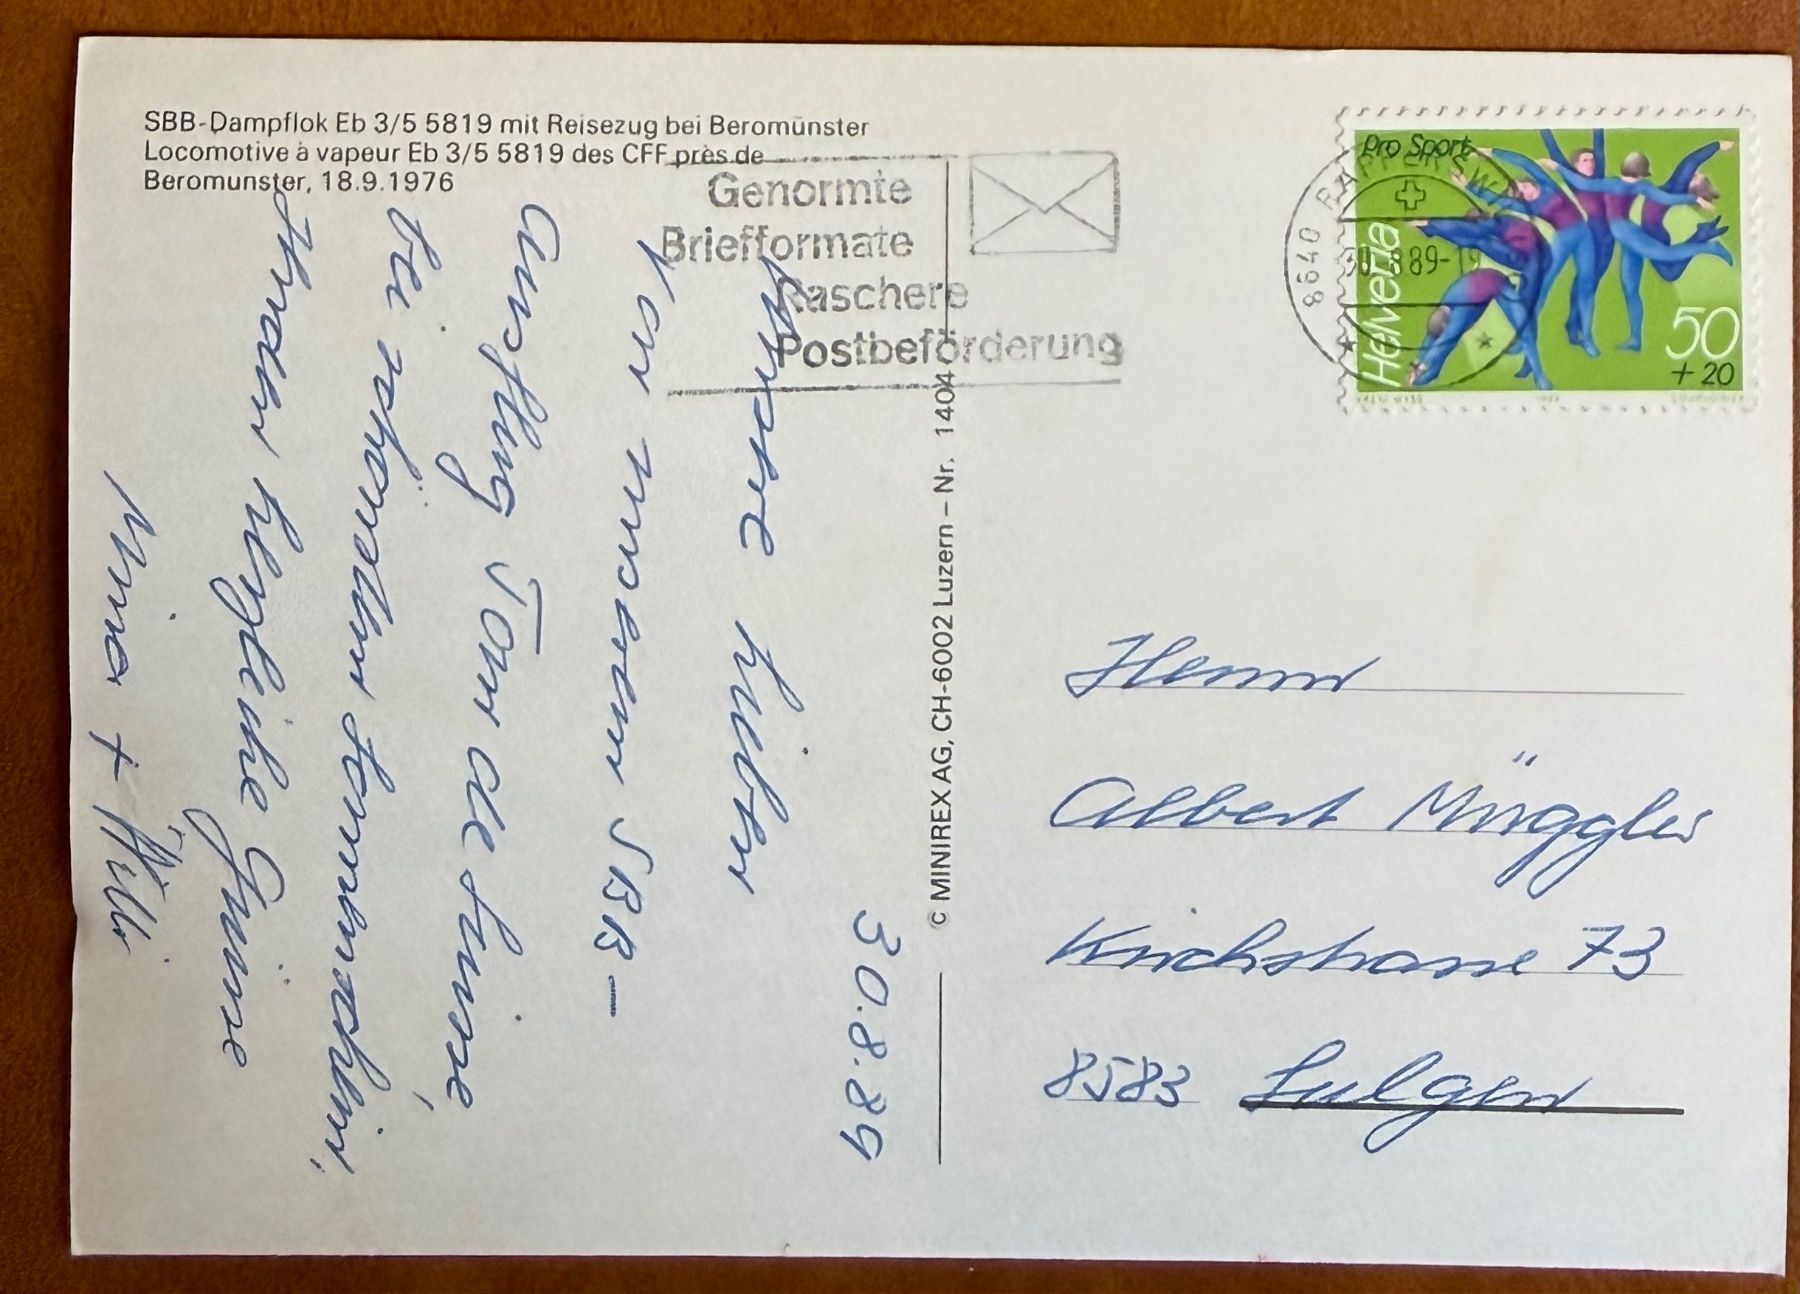 SBB-Dampflok Eb 3/5 5819 mit Reisezug bei Beromünster
Locomotive à vapeur Eb 3/5 5819 des CFF près de
Beromünster, 18.9.1976
Genormte
Briefformate
Raschere
Postbeförderung
8640 RAPPERSWIL
89-19
Pro Sport
Helvetia
50
+ 20
30.8.89
Unsere lieben
Von unserem SBB-
Ausflug Tour de Suisse,
bei schönstem Sonnenschein,
herzliche Grüsse
+ Willi
© MINIREX AG, CH-6002 Luzern – Nr. 1404
Herrn
Albert Müggler
Kirchstrasse 73
8583 Sulgen